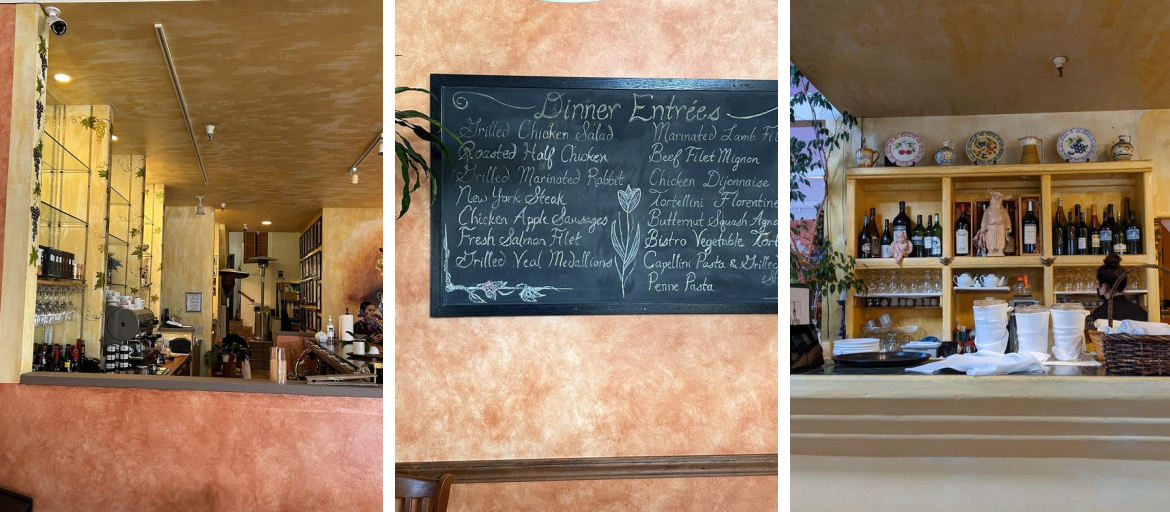 Dinner Entrées
Grilled Chicken Salad
Roasted Half Chicken
Grilled Marinated Rabbit
New York Steak
Chicken Apple Sausages
Fresh Salmon Filet
Grilled Veal Medallions
Marinated Lamb Fil
Beef Filet Mignon
Chicken Dijonnaise
Tortellini Florentine
Butternut Squash Agno
Bistro Vegetable Tort
Capellini Pasta & Grilled
Penne Pasta